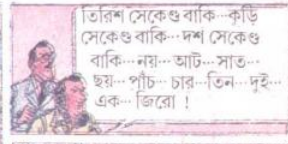 তিরিশ সেকেণ্ড বাকি...কুড়ি
সেকেণ্ড বাকি... দশ সেকেণ্ড
বাকি...নয়... আট... সাত...
ছয়... পাঁচ... চার...তিন...দুই...
এক... জিরো !